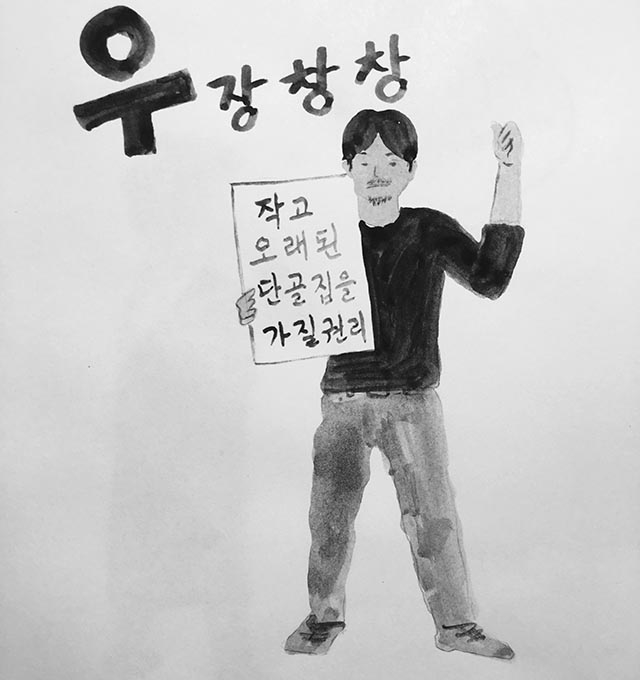 우장창창
작고
오래된
단골집을
가질권리